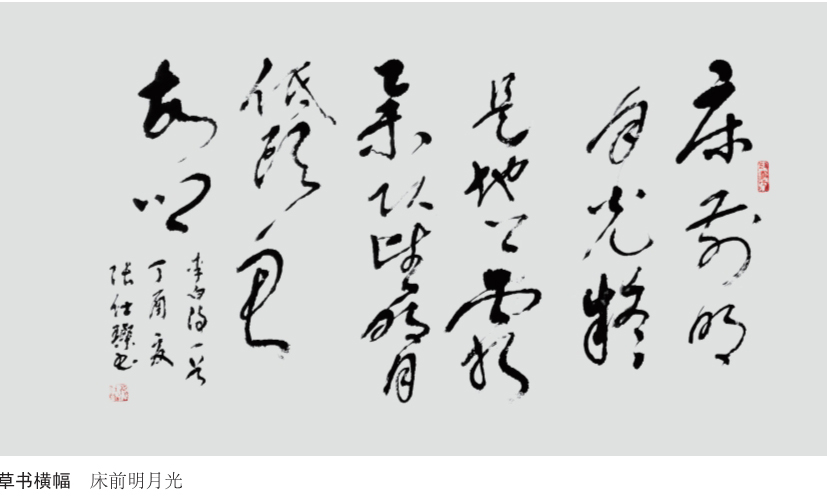 床前明
月光疑
是地上霜
举头望明月
低头思
故乡
李白诗一首
丁酉夏
张仕璨书
草书横幅　床前明月光